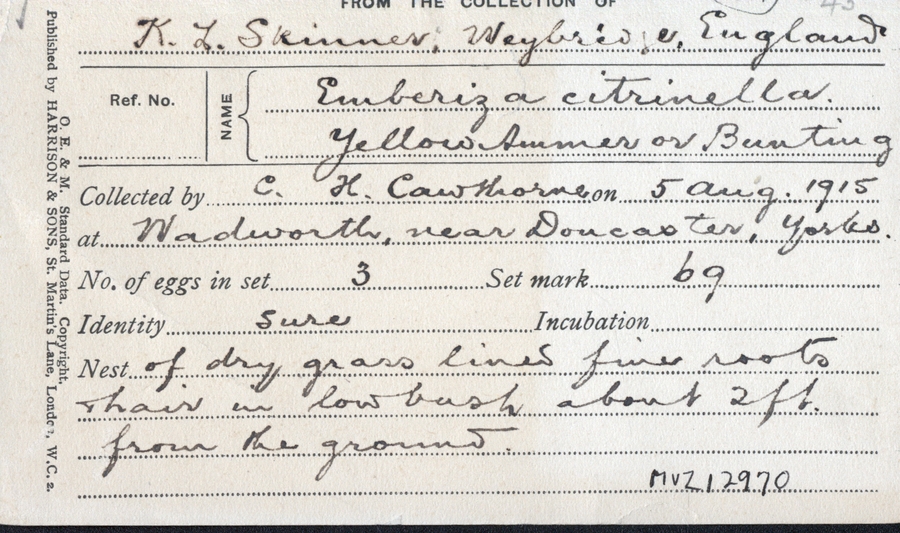 FROM THE COLLECTION OF
K. L. Skinner, Weybridge, England
Ref. No.
NAME
Emberiza citrinella.
Yellow Ammer or Bunting
Collected by C. H. Cawthorne on 5 Aug. 1915
at Wadworth, near Doncaster, Yorks.
No. of eggs in set 3 Set mark 69
Identity sure Incubation
Nest of dry grass lined fine roots
+ hair in low bush about 2ft.
from the ground.
MVZ12970
O. E. & M. Standard Data. Copyright,
Published by HARRISON & SONS, St. Martin's Lane, London, W.C.2.